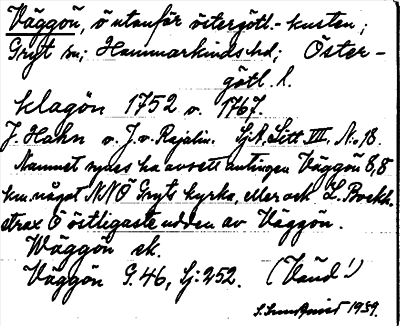 Väggön, ö utanför östergötl.-kusten;
Gryt sn; Hammarkinds hd; Öster-
götl. l.
klagön 1752 v. 1767.
J. Hahn v. J. v. Rajalin. Sj.A. Litt VIII, N:o 18.
Namnet synes ha avsett antingen Väggön 8,8
km. något NNÖ Gryts kyrka, eller ock L. Bockh.
strax Ö östligaste udden av Väggön.
Wäggön ek.
Väggön G. 46, Sj: 252. (Vänd!)
1939.